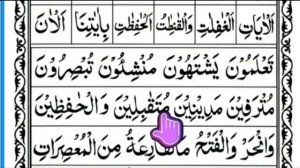 اَلْاٰيَاتِ الْغٰفِلٰتِ وَالْقٰنِتٰتِ الْحٰفِظٰتِ بِاٰيٰتِنَا اَلْاٰنَ
تَعْلَمُوْنَ يَشْتَهُوْنَ مُنْشِئُوْنَ تُبْصِرُوْنَ
مُتْرَفِيْنَ مَدِيْنِيْنَ مُتَقٰبِلِيْنَ وَالْحٰفِظِيْنَ
وَانْحَرْ وَالْفَتْحُ مَا الْقَارِعَةُ مِنَ الْمُعْصِرَاتِ